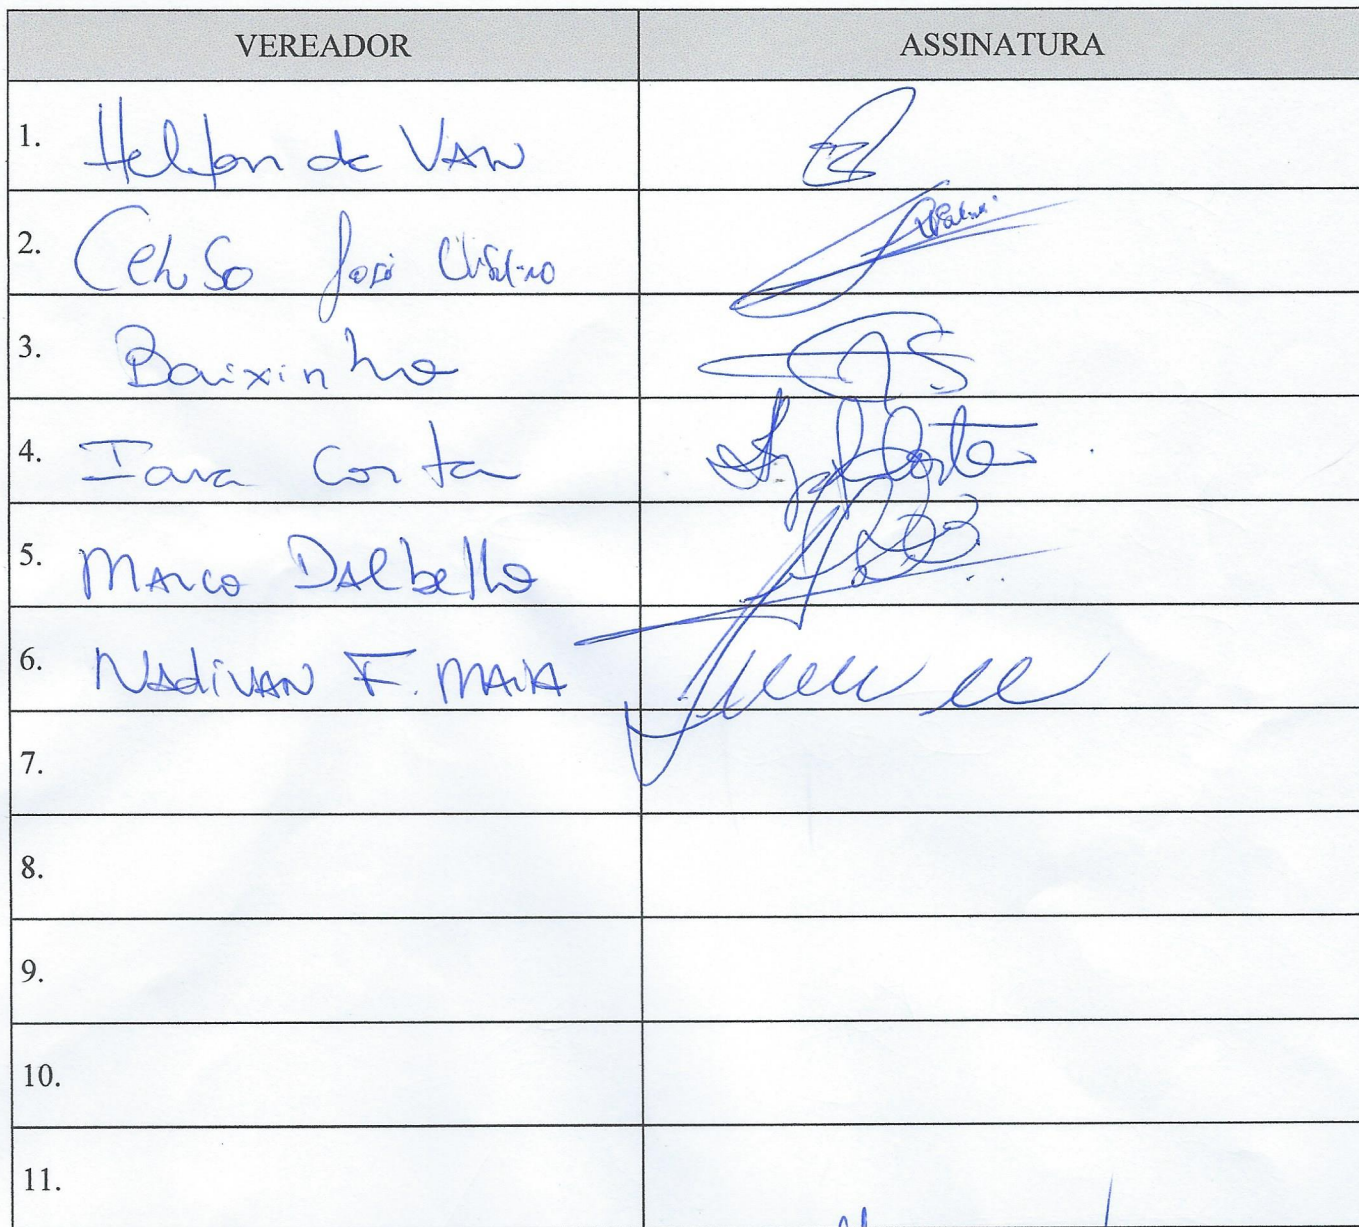 VEREADOR ASSINATURA
1. Helton de VAN
2. Celso José
3. Baixinho
4. Iara Costa
5. MARCO DAlbello
6. NAdiVAN F. MAIA
7.
8.
9.
10.
11.